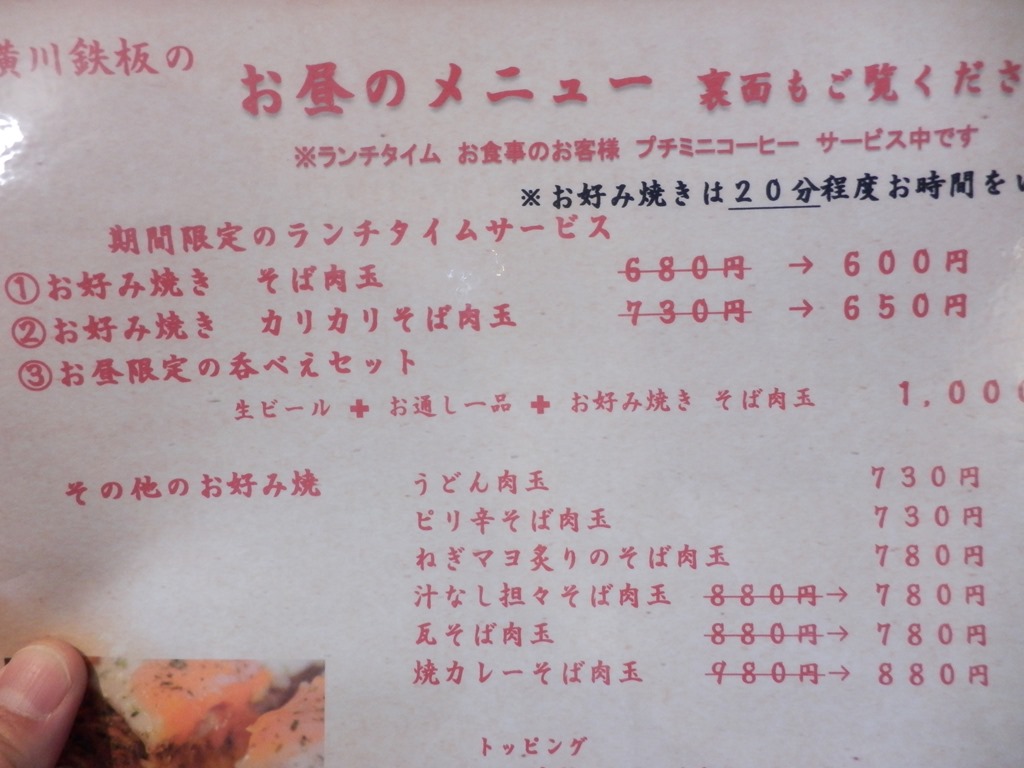 横川鉄板の
お昼のメニュー 裏面もご覧くださ
※ランチタイム お食事のお客様 プチミニコーヒー サービス中です
※お好み焼きは20分程度お時間をい
期間限定のランチタイムサービス
①お好み焼き そば肉玉 680円 → 600円
②お好み焼き カリカリそば肉玉 730円 → 650円
③お昼限定の呑べえセット
生ビール ✚ お通し一品 ✚ お好み焼き そば肉玉 1,000
その他のお好み焼 うどん肉玉 730円
ピリ辛そば肉玉 730円
ねぎマヨ炙りのそば肉玉 780円
汁なし担々そば肉玉 880円→ 780円
瓦そば肉玉 880円→ 780円
焼カレーそば肉玉 980円→ 880円
トッピング